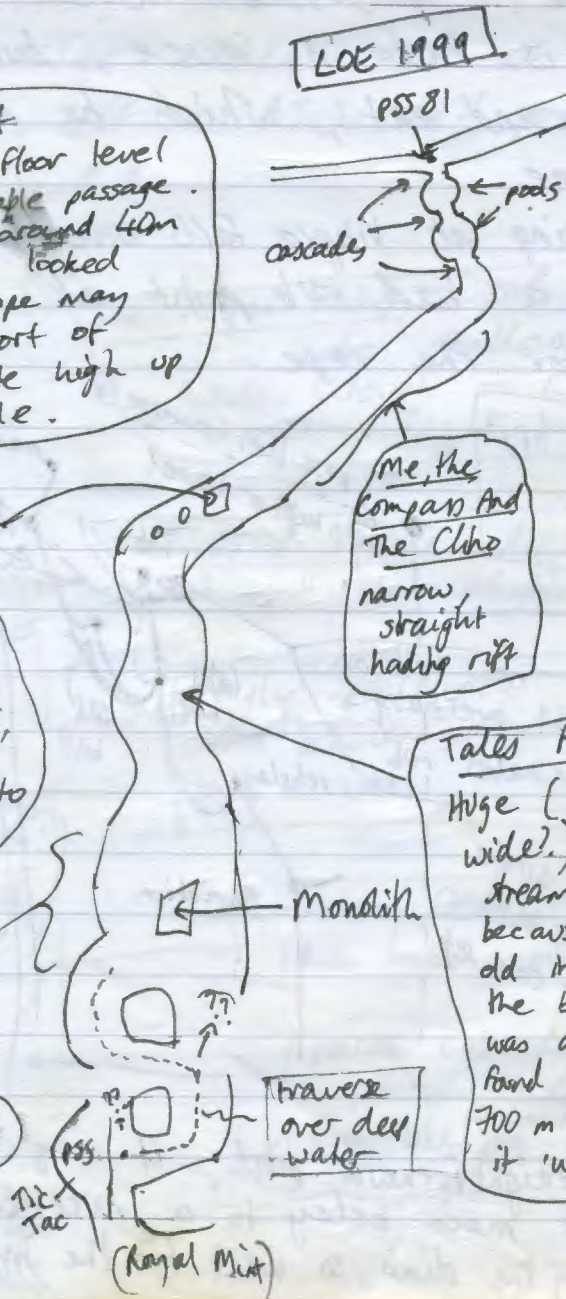 LOE 1999
pss 81
floor level
passage.
around 40m
looked
ope may
ort of
high up
le.
cascades
pools
Me, the
Compass And
The Clino
narrow,
straight
hading rift
to
Tales
Huge (
wide?
stream
becaus
old
the
was a
found
700 m
it 'w
Monolith
??
??
traverse
over deep
water
pss
Tic
Tac
(Royal Mint)